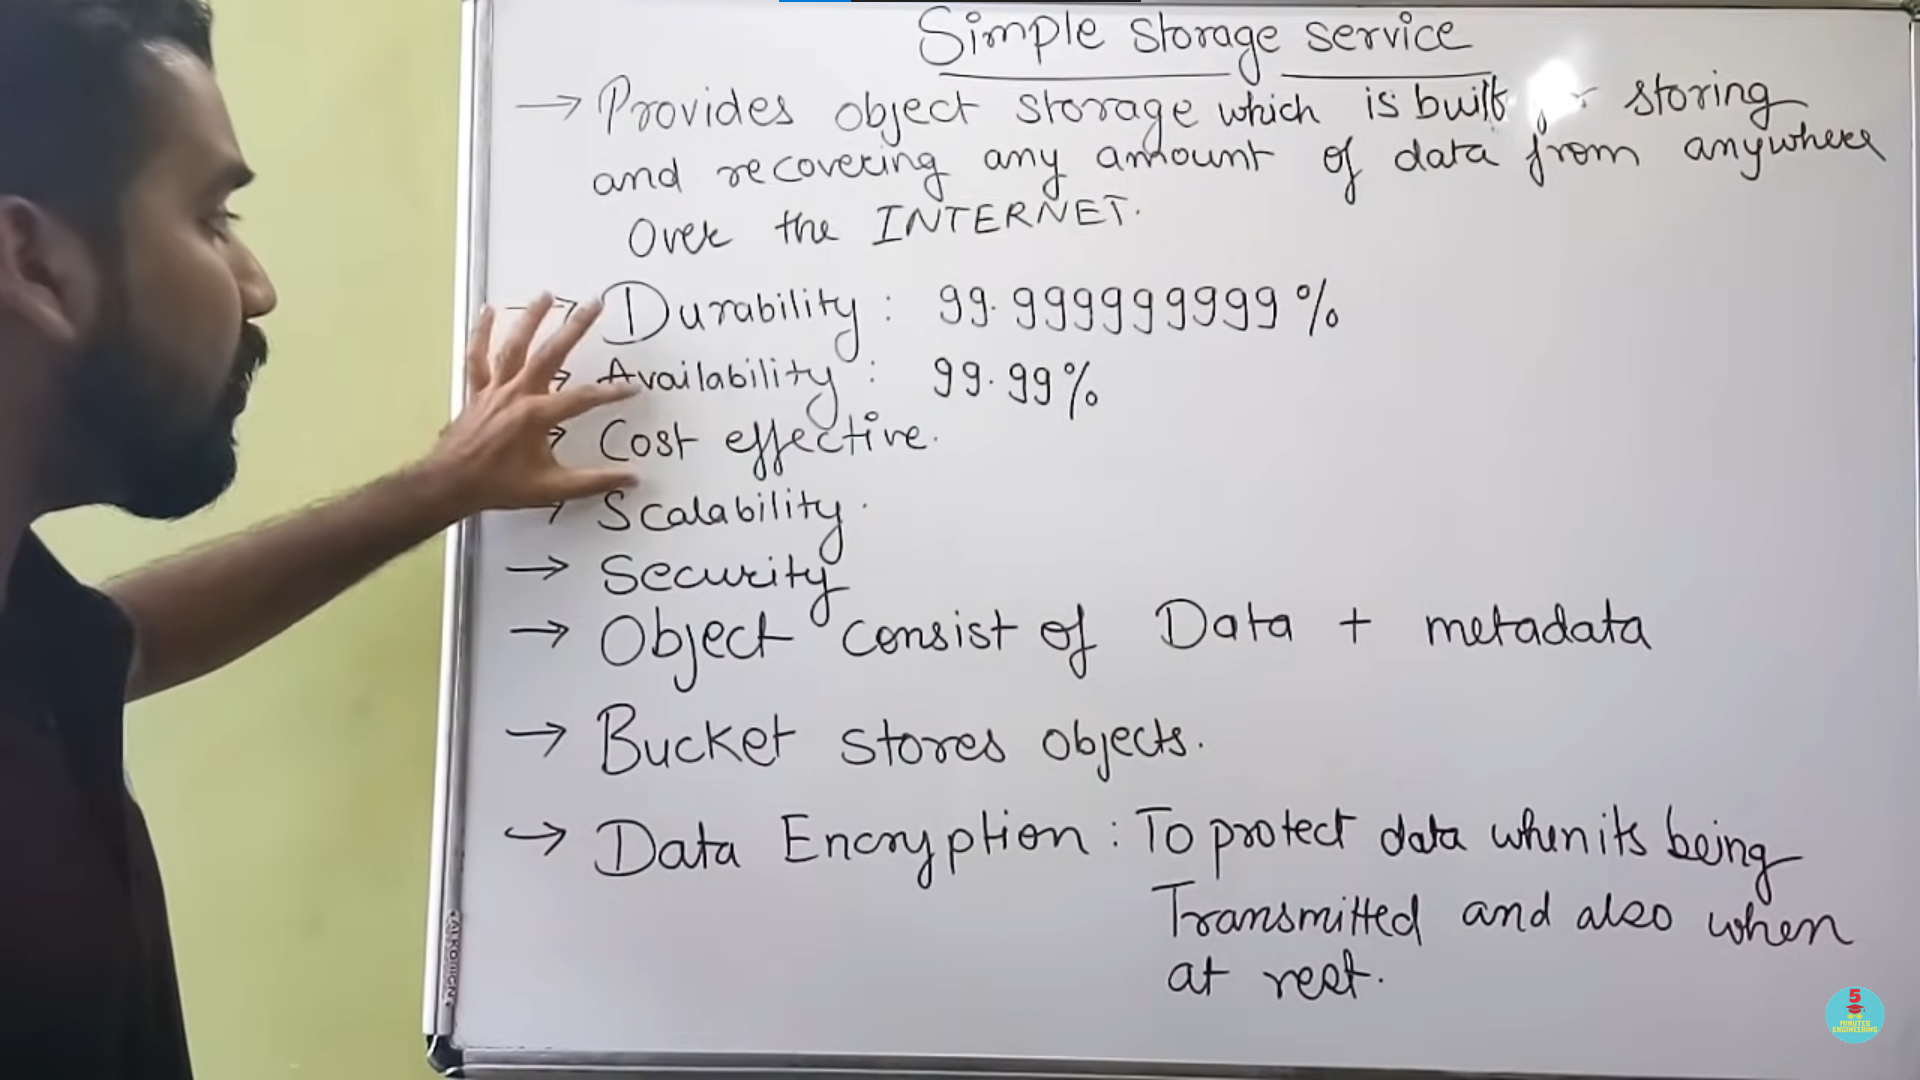 Simple storage service
→ Provides object storage which is built storing
and recovering any amount of data from anywhere
Over the INTERNET.
→ Durability : 99.999999999%
→ Availability : 99.99%
→ Cost effective.
→ Scalability.
→ Security
→ Object consist of Data + metadata
→ Bucket stores objects.
→ Data Encryption : To protect data when its being
Transmitted and also when
at rest.
5
MINUTES
ENGINEERING